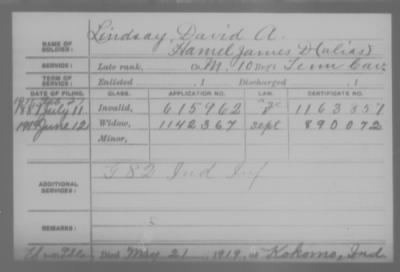 Lindsay, David A.
NAME OF SOLDIER: Hamel, James D (alias)
SERVICE: Late rank, Co. M, 10 Reg't Tenn Cav.
TERM OF SERVICE: Enlisted , 1 Discharged , 1
DATE OF FILING. CLASS. APPLICATION NO. LAW. CERTIFICATE NO.
July 11 Invalid, 615962 1163357
1919 June 12 Widow, 1142367 Sept 890072
Minor,
ADDITIONAL SERVICES: G 82 Ind Inf
REMARKS:
Died May 21 1919, at Kokomo, Ind